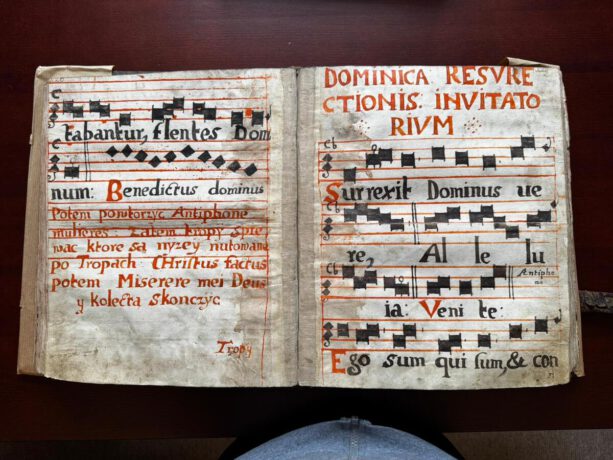 tabantur, flentes Dom
num: Benedictus dominus
Potem powtorzyc Antiphone
mulieres. Zatem tropy spie
wac ktore są nizey notowane
po Tropach. CHristus factus
potem Miserere mei Deus
y kolecta skonczyc
Tropy
DOMINICA RESVRE
CTIONIS. INVITATO
RIVM
Surrexit Dominus ue
re, Al le lu
Antipho
na
ia: Veni te:
Ego sum qui sum, & con